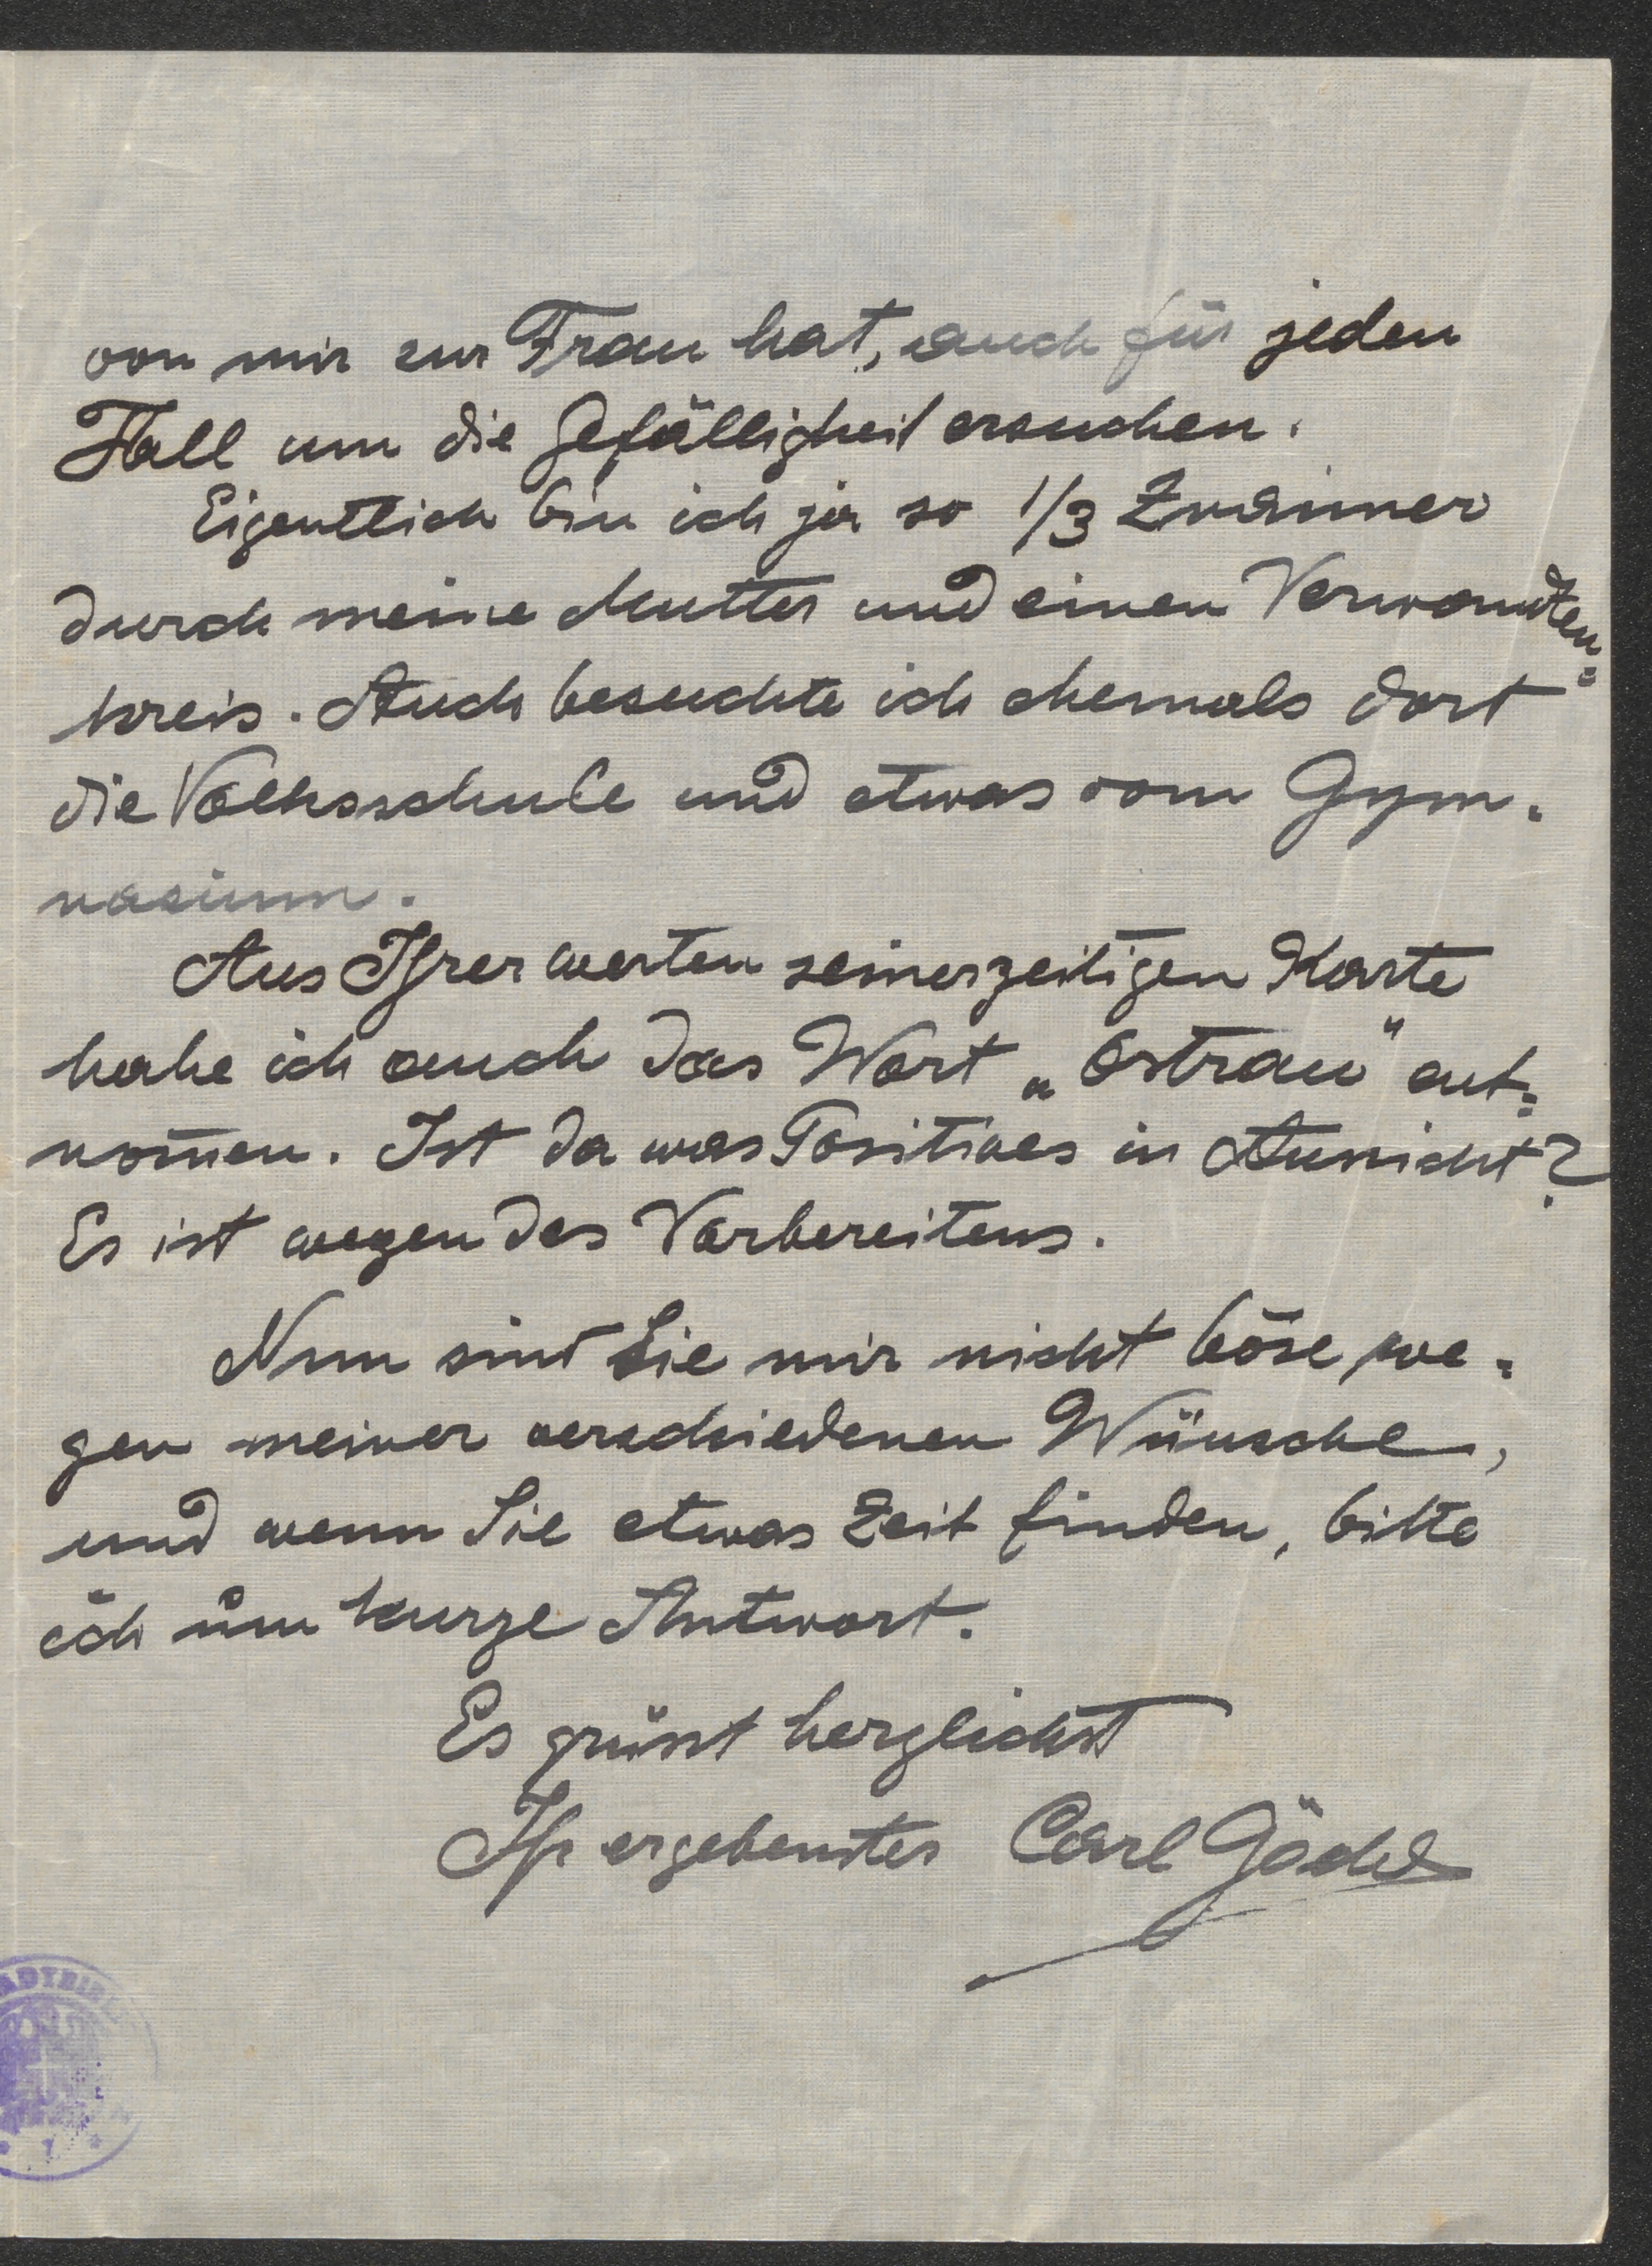 von mir zur Frau hat, auch für jeden
Fall um die Gefälligkeit ersuchen.
Eigentlich bin ich ja so 1/3 Znaimer
durch meine Mutter und einen Verwandten=
kreis. Auch besuchte ich ehemals dort
die Volksschule und etwas vom Gym=
nasium.
Aus Ihrer werten seinerzeitigen Karte
habe ich auch das Wort „Ostrau" ent=
nom̅en. Ist da was Positives in Aussicht?
Es ist wegen des Vorbereitens.
Nun sind Sie mir nicht böse we=
gen meiner verschiedenen Wünsche,
und wenn Sie etwas Zeit finden, bitte
ich um kurze Antwort.
Es grüsst herzlichst
Ihr ergebenster Carl Gödel